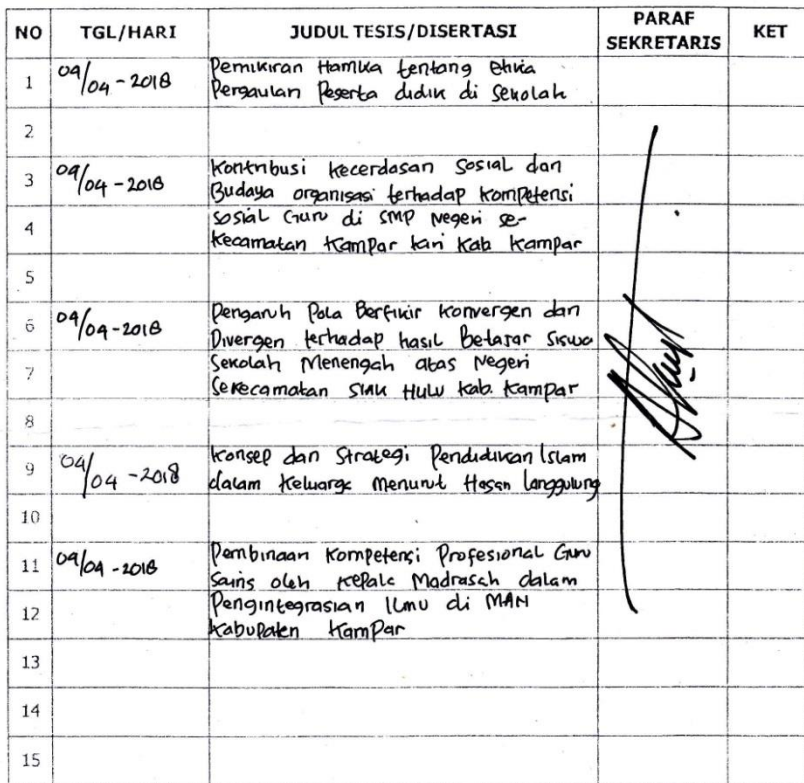 NO TGL/HARI JUDUL TESIS/DISERTASI PARAF SEKRETARIS KET
1 04/04-2018 Pemikiran Hamka tentang etika
Pergaulan Peserta didik di Sekolah
2
3 04/04-2018 Kontribusi kecerdasan Sosial dan
Budaya organisasi terhadap kompetensi
4 Sosial Guru di SMP Negeri se-
Kecamatan Kampar kiri Kab Kampar
5
6 04/04-2018 Pengaruh Pola Berfikir Konvergen dan
Divergen terhadap hasil Belajar Siswa
7 Sekolah Menengah atas Negeri
Sekecamatan Siak Hulu Kab. Kampar
8
9 04/04-2018 Konsep dan Strategi Pendidikan Islam
dalam Keluarga menurut Hasan Langgulung
10
11 04/04-2018 Pembinaan Kompetensi Profesional Guru
Sains oleh Kepala Madrasah dalam
12 Pengintegrasian Ilmu di MAN
Kabupaten Kampar
13
14
15